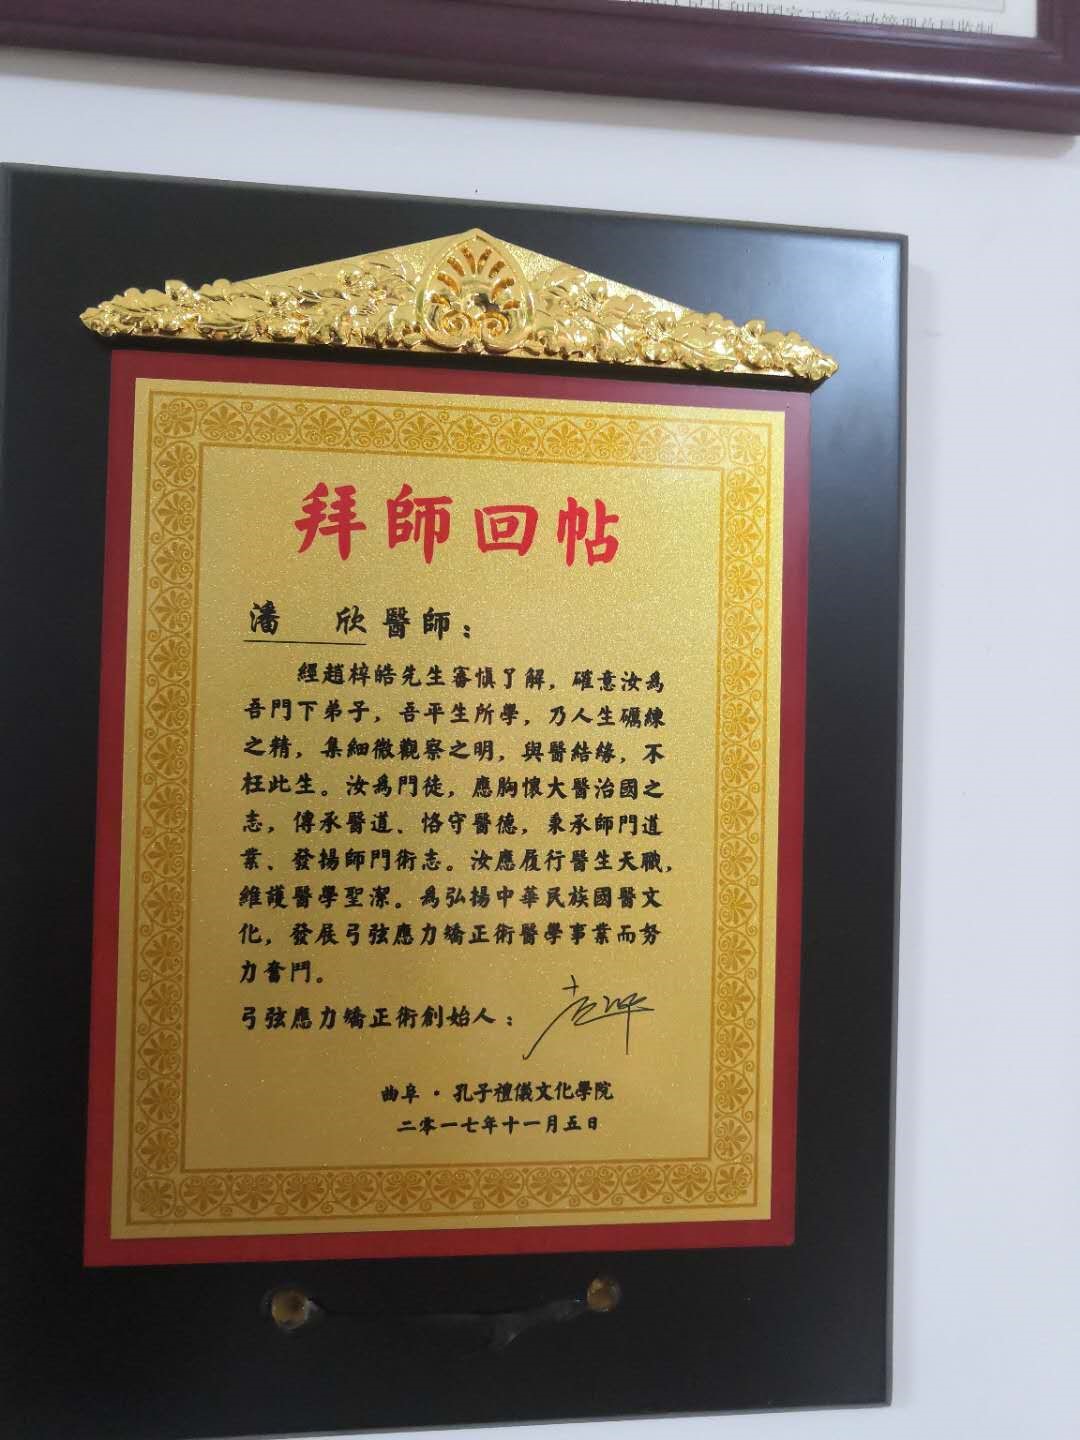 人民共和国国家工商行政管理总局监制
拜師回帖
潘 欣醫師：
經趙梓皓先生審慎了解，確意汝為
吾門下弟子，吾平生所學，乃人生礪練
之精，集細微觀察之明，與醫結緣，不
枉此生。汝為門徒，應胸懷大醫治國之
志，傳承醫道、恪守醫德，秉承師門道
業、發揚師門術志。汝應履行醫生天職，
維護醫學聖潔。為弘揚中華民族國醫文
化，發展弓弦應力矯正術醫學事業而努
力奮鬥。
弓弦應力矯正術創始人：
曲阜·孔子禮儀文化學院
二零一七年十一月五日